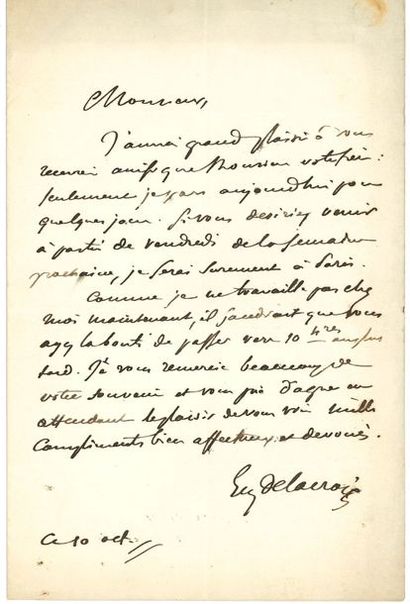 Monsieur,
J'aurai grand plaisir à vous
recevoir ainsi que Monsieur votre frère :
seulement je pars aujourdhui pour
quelques jours. Si vous desiriez venir
à partir de vendredi de la semaine
prochaine, je serai surement à Paris.
Comme je ne travaille pas chez
moi maintenant, il faudrait que vous
ayez la bonté de passer vers 10 hres au plus
tard. Je vous remercie beaucoup de
votre souvenir et vous prie d'agréer en
attendant le plaisir de vous voir mille
compliments bien affectueux et devoués.
Eug Delacroix
ce 10 oct.